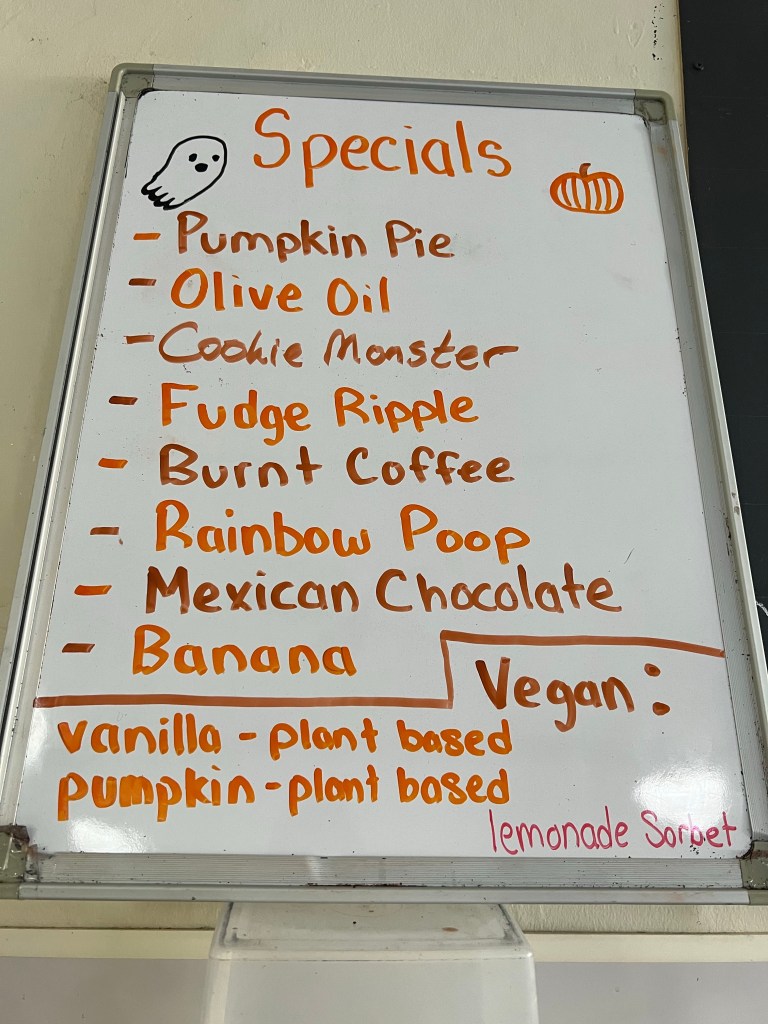 Specials
- Pumpkin Pie
- Olive Oil
- Cookie Monster
- Fudge Ripple
- Burnt Coffee
- Rainbow Poop
- Mexican Chocolate
- Banana
Vegan:
vanilla - plant based
pumpkin - plant based
lemonade Sorbet